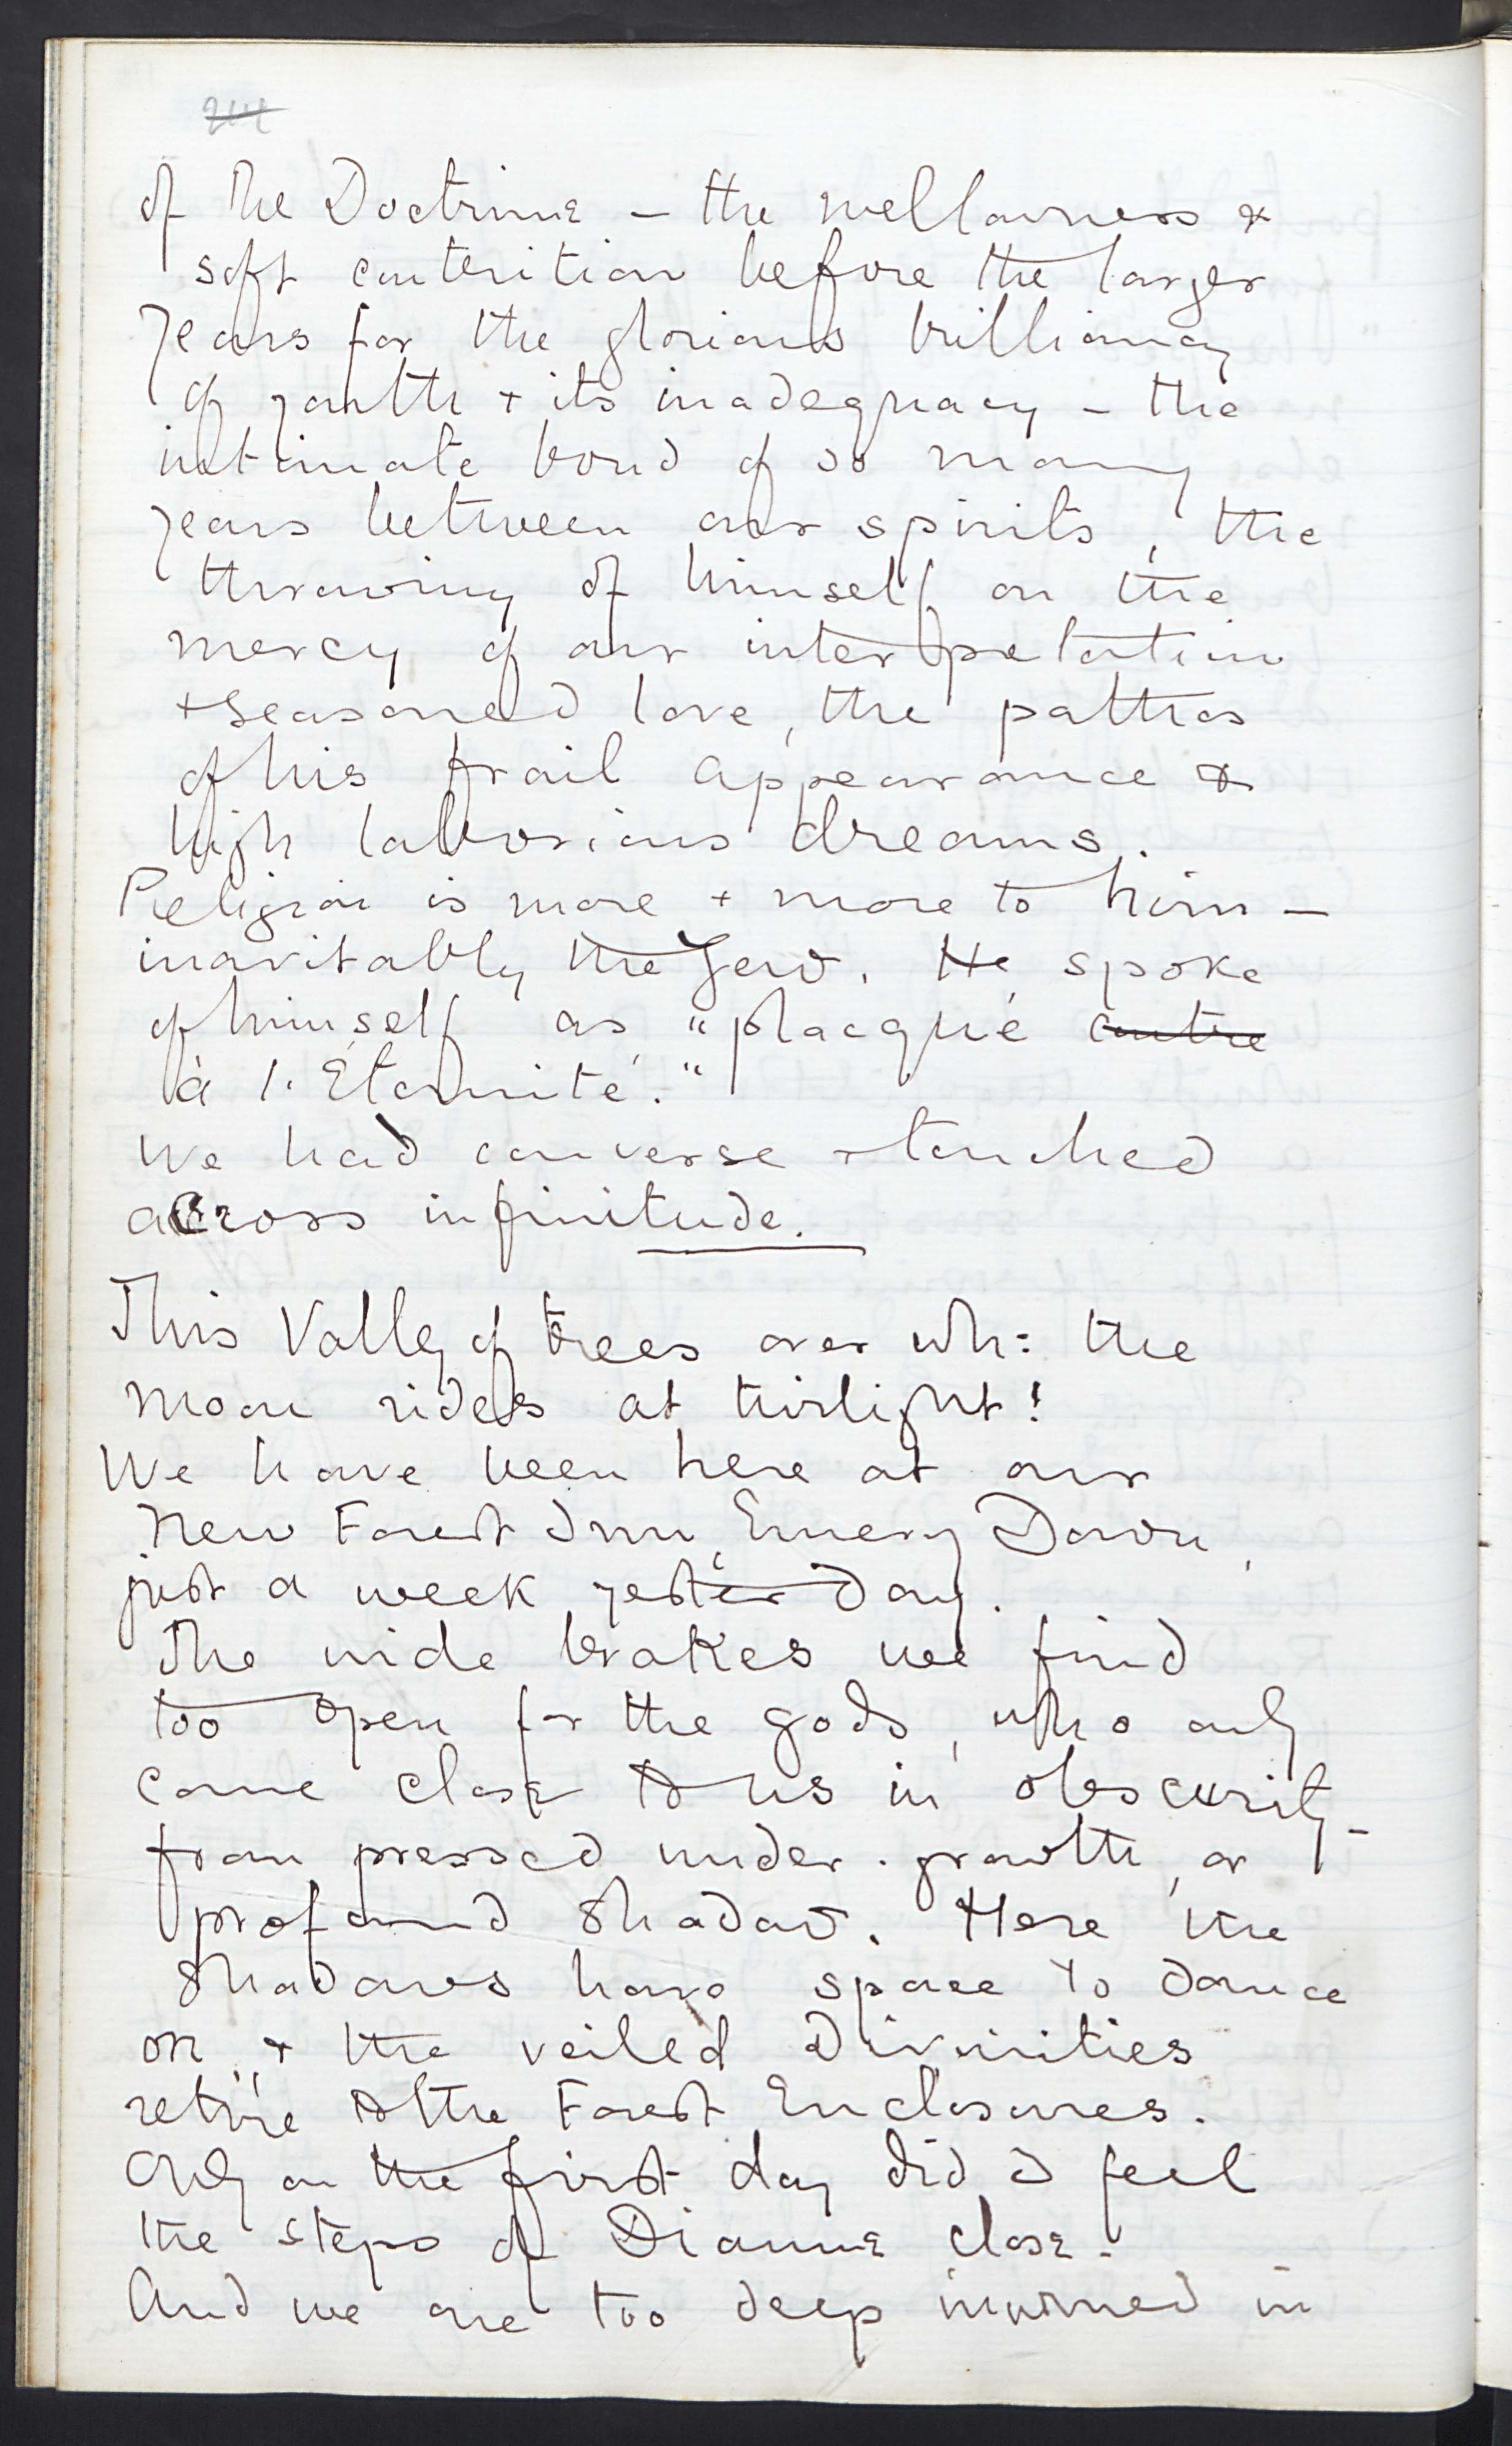 of the Doctrine – the mellowness &
soft contrition before the larger
years for the glorious brilliancy
of youth + its inadequacy – the
intimate bond of so many
years between our spirits, the
throwing of himself on the
mercy of our interpretation
+ seasoned love, the pathos
of his frail appearance &
high laborious dreams.
Religion is more + more to him –
inevitably the Jew. He spoke
of himself as "placqué contre
à l'Éternité."
We had converse + touched
across infinitude.
This Valley of trees over wh: the
moon rides at twilight!
We have been here at our
New Forest Inn, Emery Down,
just a week yesterday.
The wide brakes we find
too open for the gods, who only
come close to us in obscurity –
from pressed under-growth, or
profound shadow. Here the
shadows have space to dance
on, + the veiled Divinities
retire to the Forest Enclosures.
Only on the first day did I feel
the steps of Dianna close.
And we are too deep inurned in